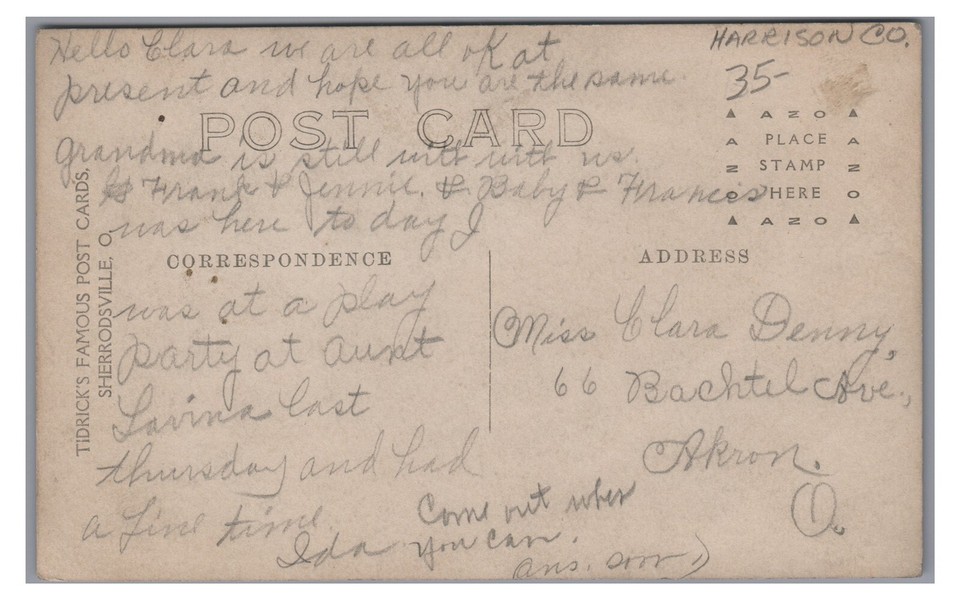 Hello Clara we are all ok at
present and hope you are the same.
HARRISON CO.
35-
POST CARD
grandma is still with with us.
Frank & Jennie. & Baby & Francis
was here to day I
AZO
PLACE
STAMP
HERE
AZO
AZO
AZO
CORRESPONDENCE
ADDRESS
was at a play
party at aunt
Lavina last
thursday and had
a fine time.
Ida
Come out when
you can.
ans. soon
Miss Clara Denny,
66 Bachtel Ave.,
Akron.
O.
TIDRICK'S FAMOUS POST CARDS,
SHERRODSVILLE, O.